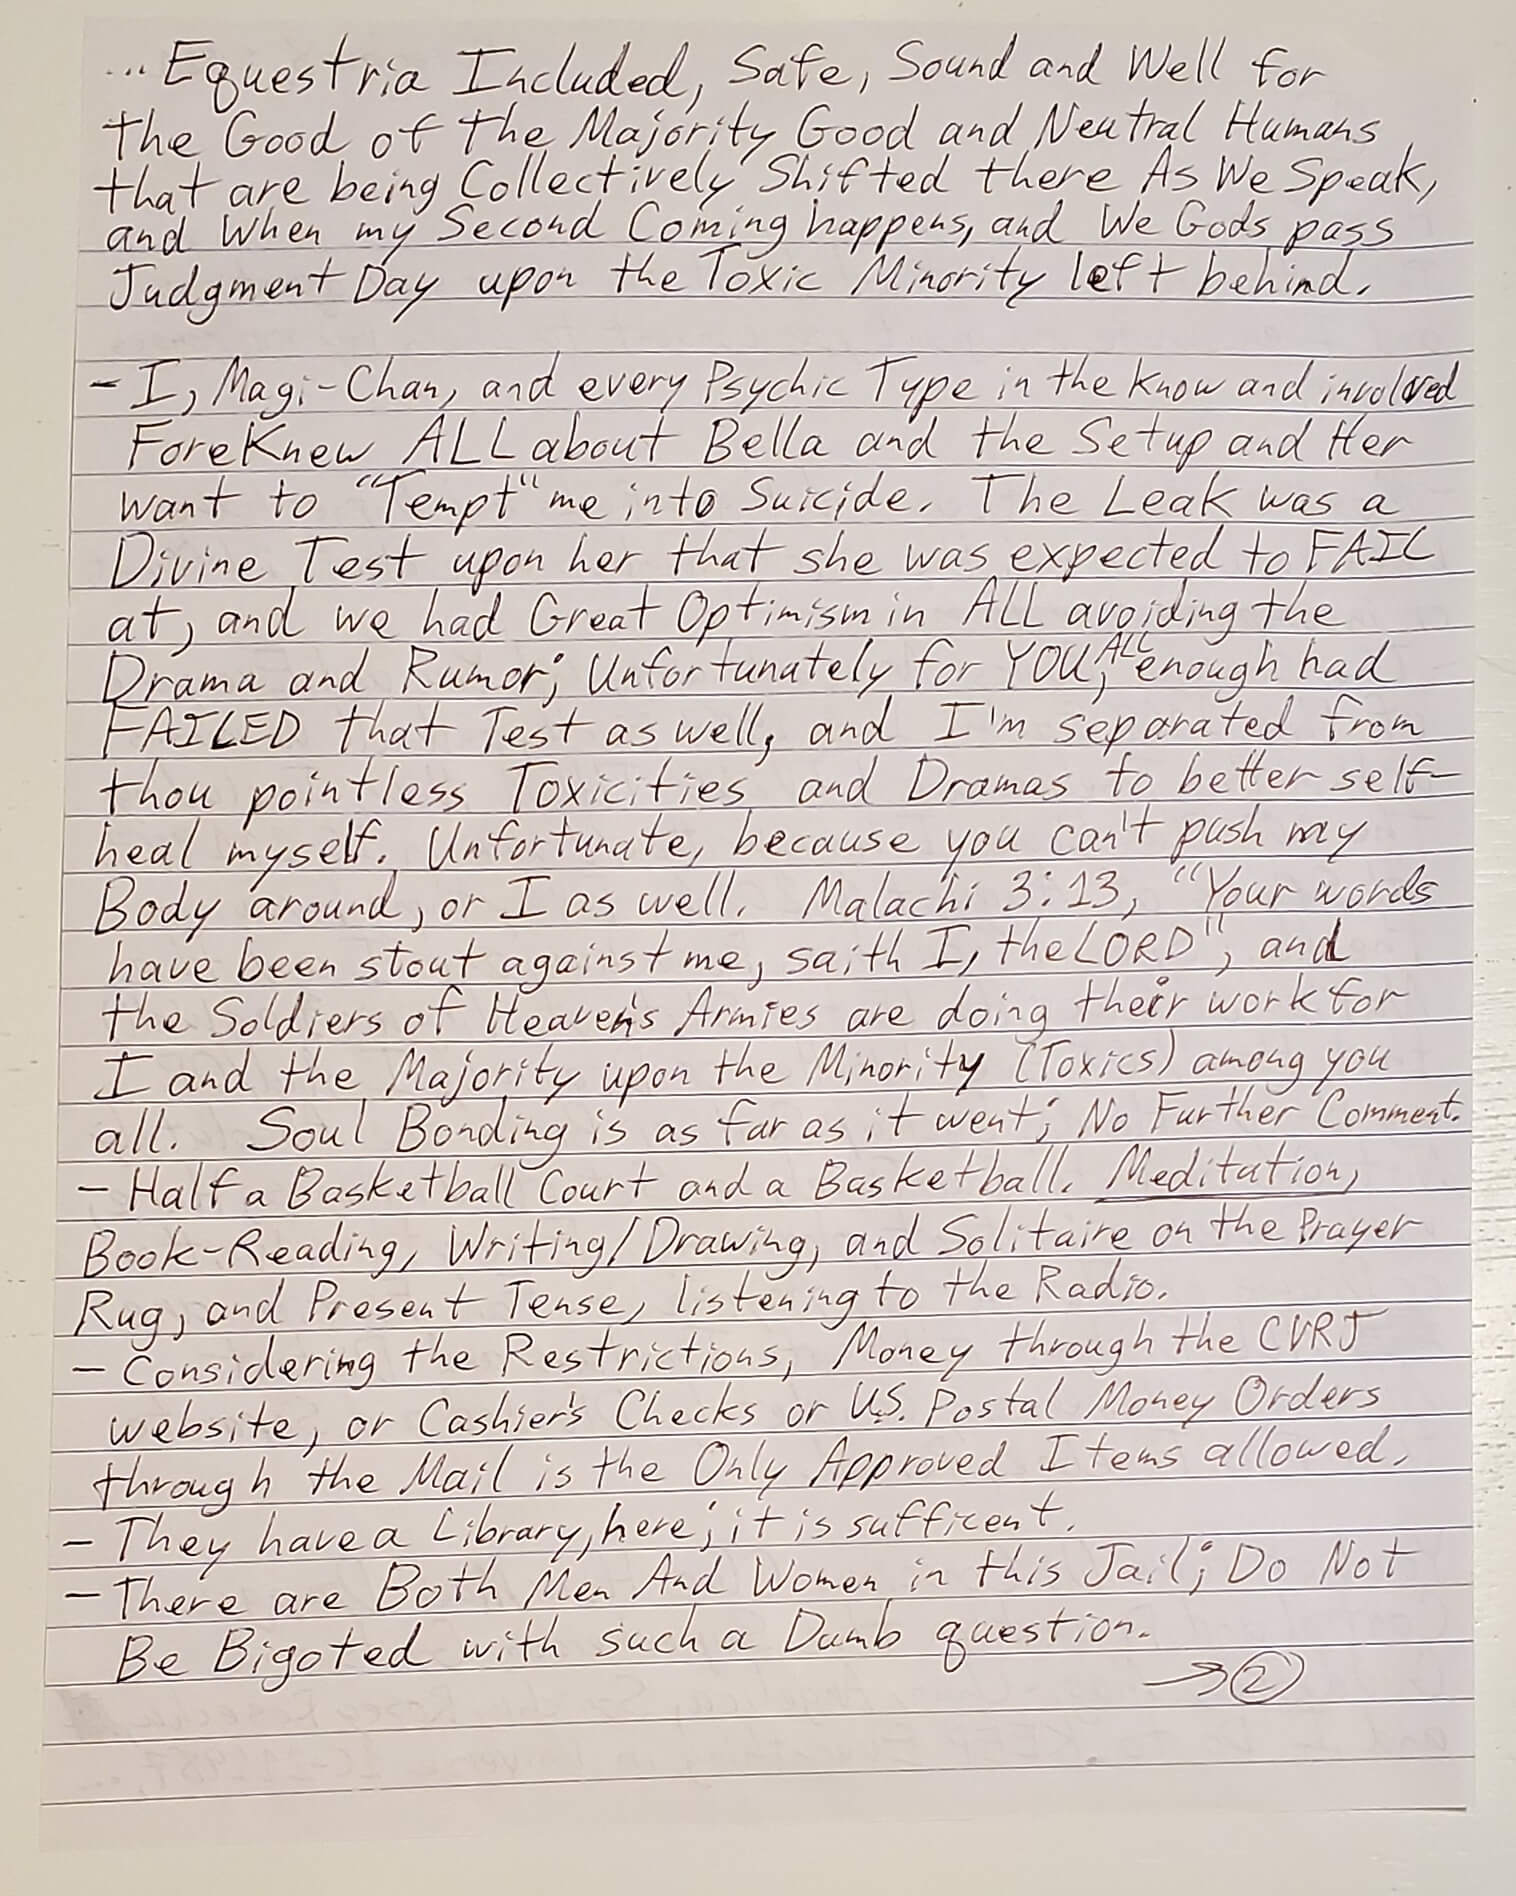 ...Equestria Included, Safe, Sound and Well for
the Good of the Majority Good and Neutral Humans
that are being Collectively Shifted there As We Speak,
and When my Second Coming happens, and We Gods pass
Judgment Day upon the Toxic Minority left behind.
- I, Magi-Chan, and every Psychic Type in the Know and involved
ForeKnew ALL about Bella and the Setup and Her
want to "Tempt" me into Suicide. The Leak was a
Divine Test upon her that she was expected to FAIL
at, and we had Great Optimism in ALL avoiding the
Drama and Rumor; Unfortunately for YOU, ALL enough had
FAILED that Test as well, and I'm separated from
thou pointless Toxicities and Dramas to better self-
heal myself. Unfortunate, because you can't push my
Body around, or I as well. Malachi 3:13, "Your words
have been stout against me, saith I, the LORD", and
the Soldiers of Heaven's Armies are doing their work for
I and the Majority upon the Minority (Toxics) among you
all. Soul Bonding is as far as it went; No Further Comment.
- Half a Basketball Court and a Basketball. Meditation,
Book-Reading, Writing/Drawing, and Solitaire on the Prayer
Rug, and Present Tense, listening to the Radio.
- Considering the Restrictions, Money through the CVRJ
website, or Cashier's Checks or U.S. Postal Money Orders
through the Mail is the Only Approved Items allowed.
- They have a Library, here; it is sufficent.
- There are Both Men And Women in this Jail; Do Not
Be Bigoted with such a Dumb question.
→ 2